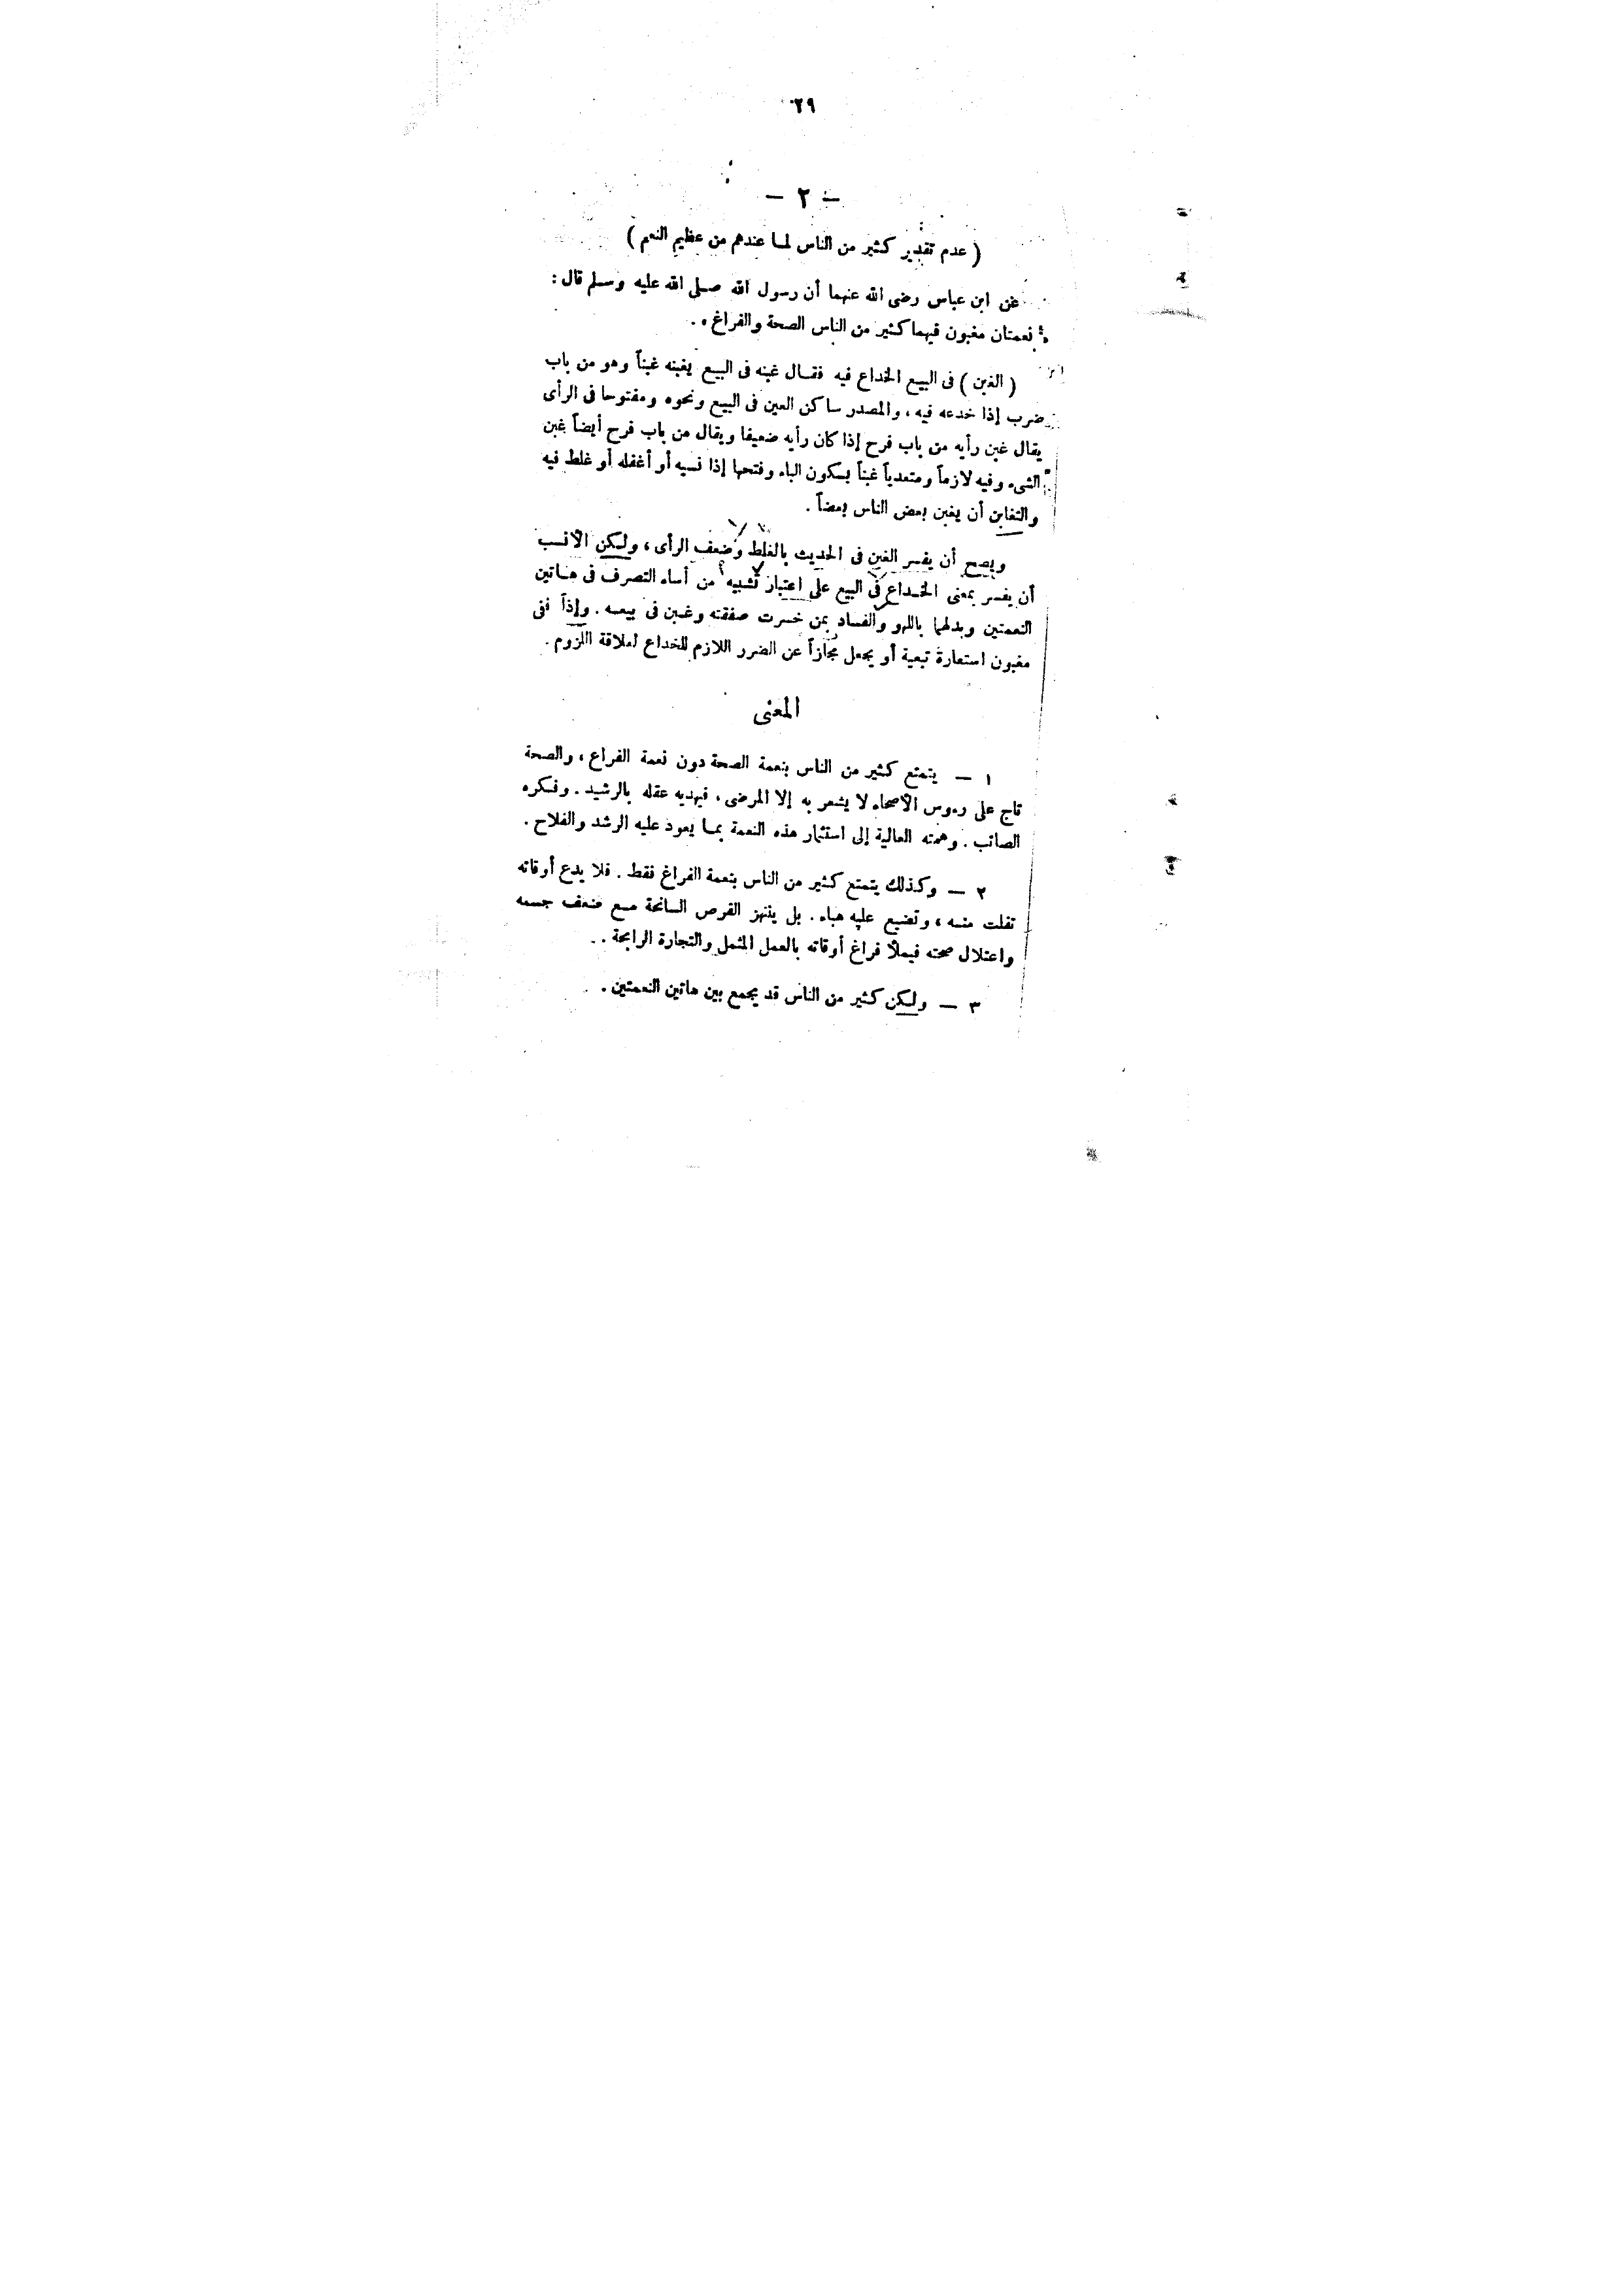 ٢٩
— ٢ —
( عدم تقدير كثير من الناس لما عندهم من عظيم النعم )
عن ابن عباس رضى الله عنهما أن رسول الله صلى الله عليه وسلم قال :
« نعمتان مغبون فيهما كثير من الناس الصحة والفراغ » .
( الغبن ) فى البيع الخداع فيه فقال غبنه فى البيع يغبنه غبناً وهو من باب
ضرب إذا خدعه فيه ، والمصدر ساكن العين فى البيع ونحوه ومفتوحا فى الرأى
يقال غبن رأيه من باب فرح إذا كان رأيه ضعيفا ويقال من باب فرح أيضاً غبن
الشىء وفيه لازماً ومتعدياً غبناً بسكون الباء وفتحها إذا نسيه أو أغفله أو غلط فيه
والتغابن أن يغبن بعض الناس بعضاً .
ويصح أن يفسر الغبن فى الحديث بالغلط وضعف الرأى ، ولكن الأنسب
أن يفسر بمعنى الخداع فى البيع على اعتبار تشبيه من أساء التصرف فى هاتين
النعمتين وبدلهما باللهو والفساد بمن خسرت صفقته وغبن فى بيعه . وإذاً ففى
مغبون استعارة تبعية أو يجعل مجازاً عن الضرر اللازم للخداع لعلاقة اللزوم .
المعنى
١ — يتمتع كثير من الناس بنعمة الصحة دون نعمة الفراع ، والصحة
تاج على رءوس الأصحاء لا يشعر به إلا المرضى ، فيهديه عقله بالرشيد . وفكره
الصائب . وهمته العالية إلى استثمار هذه النعمة بما يعود عليه الرشد والفلاح .
٢ — وكذلك يتمتع كثير من الناس بنعمة الفراغ فقط . فلا يدع أوقاته
تفلت منه ، وتضيع عليه هباء . بل ينتهز الفرص السانحة مع ضعف جسمه
واعتلال صحته فيملأ فراغ أوقاته بالعمل المثمل والتجارة الرابحة . .
٣ — ولكن كثير من الناس قد يجمع بين هاتين النعمتين .